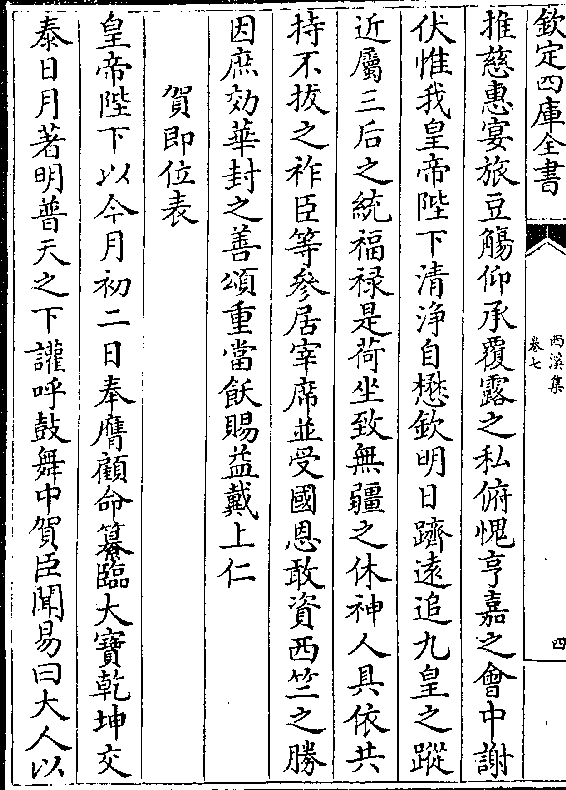 欽定四庫全書
西溪集
卷七
四
推慈惠宴旅豆觴仰承覆露之私俯愧亨嘉之會中謝
伏惟我皇帝陛下清浄自懋欽明日躋遠追九皇之蹤
近屬三后之統福禄是荷坐致無疆之休神人具依共
持不拔之祚臣等參居宰席並受國恩敢資西竺之勝
因庶効華封之善頌重當飫賜益戴上仁
賀即位表
皇帝陛下以今月初二日奉膺顧命纂臨大寳乾坤交
泰日月著明普天之下讙呼鼓舞中賀臣聞易曰大人以